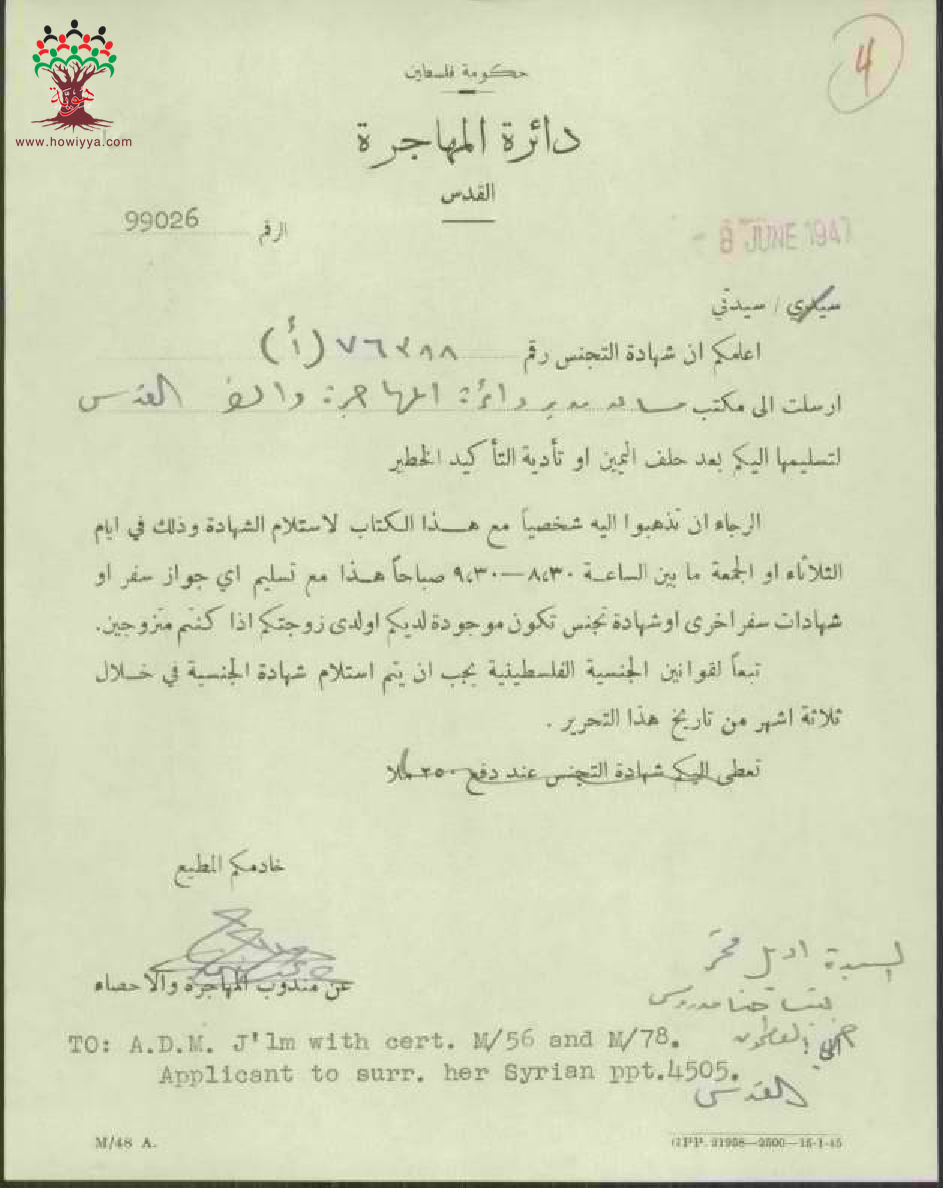 هوية
www.howiyya.com
4
حكومة فلسطين
دائرة المهاجرة
القدس
الرقم 99026
- 9 JUNE 1947
سيدي / سيدتي
اعلمكم ان شهادة التجنس رقم ٧٦٣٨٨ (أ)
ارسلت الى مكتب مساعد مدير دائرة المهاجرة القدس
لتسليمها اليكم بعد حلف اليمين او تأدية التأكيد الخطير
الرجاء ان تذهبوا اليه شخصياً مع هـذا الكتاب لاستلام الشهادة وذلك في ايام
الثلاثاء او الجمعة ما بين الساعـة ٨،٣٠—٩،٣٠ صباحاً هـذا مع تسليم اي جواز سفر او
شهادات سفر اخرى او شهادة تجنس تكون موجودة لديكم او لدى زوجتكم اذا كنتم متزوجين.
تبعاً لقوانين الجنسية الفلسطينية يجب ان يتم استلام شهادة الجنسية في خـلال
ثلاثة اشهر من تاريخ هذا التحرير .
تعطى اليكم شهادة التجنس عند دفع ٢٥٠ ملا
خادمكم المطيع
عن مندوب المهاجرة والاحصاء
السيدة اديل
بنت حنا
القدس
TO: A.D.M. J'lm with cert. M/56 and M/78.
Applicant to surr. her Syrian ppt.4505.
M/48 A.
GPP. 21958—2500—15-1-45